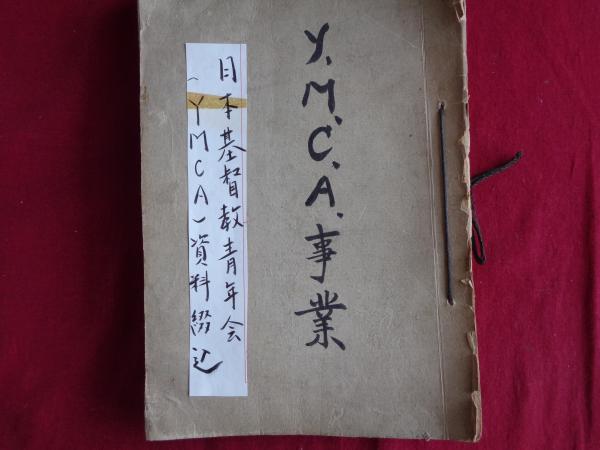 Y.M.C.A.事業
日本基督教青年会
(YMCA)資料綴込